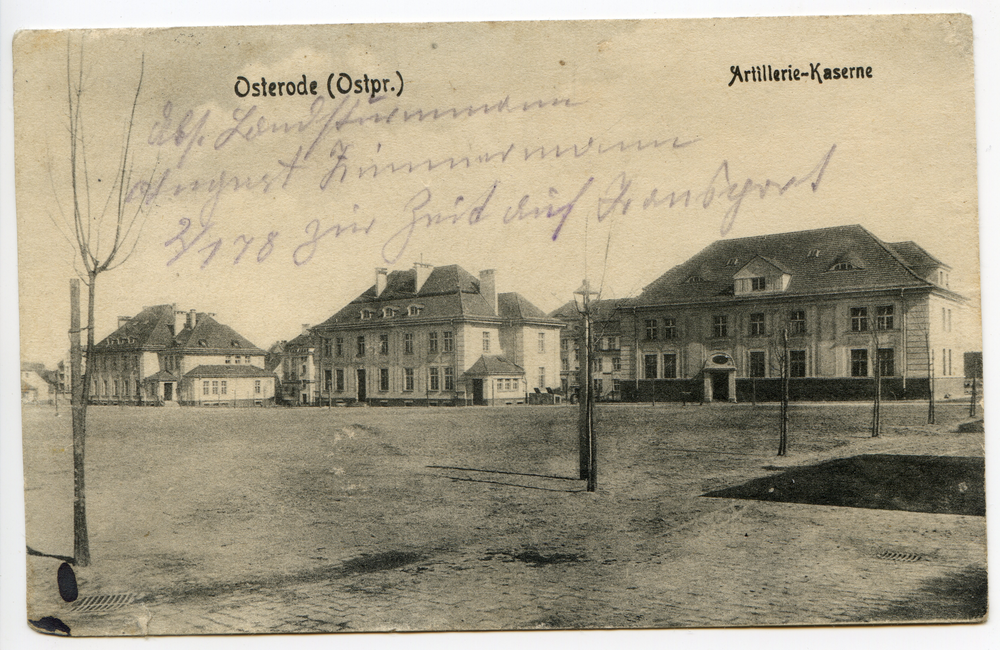 Osterode (Ostpr.)
Artillerie-Kaserne
Abs. Landsturmmann
August Zimmermann
2/178 zur Zeit auf Transport